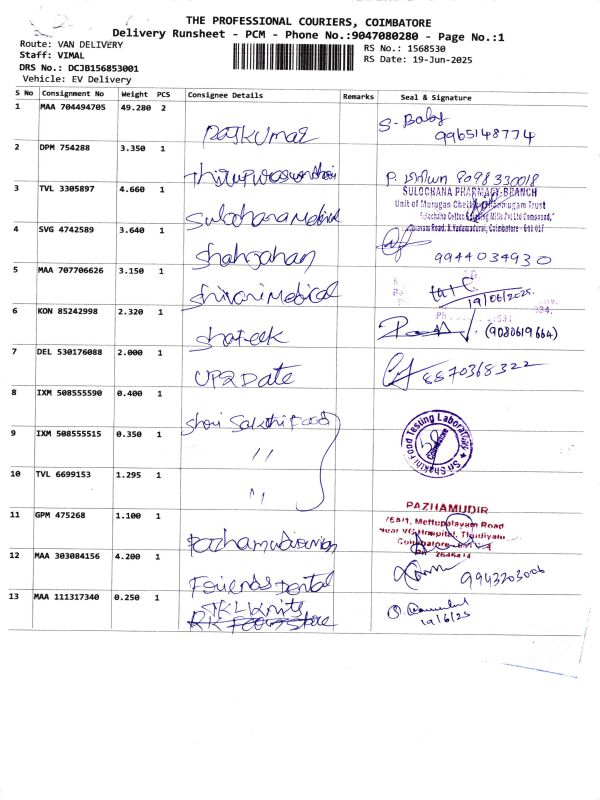 THE PROFESSIONAL COURIERS, COIMBATORE
Delivery Runsheet - PCM - Phone No.:9047080280 - Page No.:1
Route: VAN DELIVERY
Staff: VIMAL
DRS No.: DCJB156853001
Vehicle: EV Delivery
RS No.: 1568530
RS Date: 19-Jun-2025
S No Consignment No Weight PCS Consignee Details Remarks Seal & Signature
1 MAA 704494705 49.280 2 Rajkumar S. Baby
9965148774
2 DPM 754288 3.350 1 8098330018
3 TVL 3305897 4.660 1 Sulochana Medical
SULOCHANA PHARMACY-BRANCH
Unit of Murugan Trust
Sulochana Cotton Spinning Mills Pvt Ltd Compound,
Coimbatore - 641 017
4 SVG 4742589 3.640 1 Shahjahan 9944034930
5 MAA 707706626 3.150 1 Shivani Medical
19/06/2025.
6 KON 85242998 2.320 1 Shafeek (9080619664)
7 DEL 530176088 2.000 1 UP2Date 8570368322
8 IXM 508555590 0.400 1 Shri Sakthi Food
Sri Shakthi Food Testing Laboratory
Coimbatore
9 IXM 508555515 0.350 1 "
10 TVL 6699153 1.295 1 "
11 GPM 475268 1.100 1 Pazhamudir
PAZHAMUDIR
Mettupalayam Road
Near VG Hospital, Thudiyalur
Coimbatore
2646414
12 MAA 303084156 4.200 1 Friends Dental 9943203006
13 MAA 111317340 0.250 1 TKL Knits
19/6/25